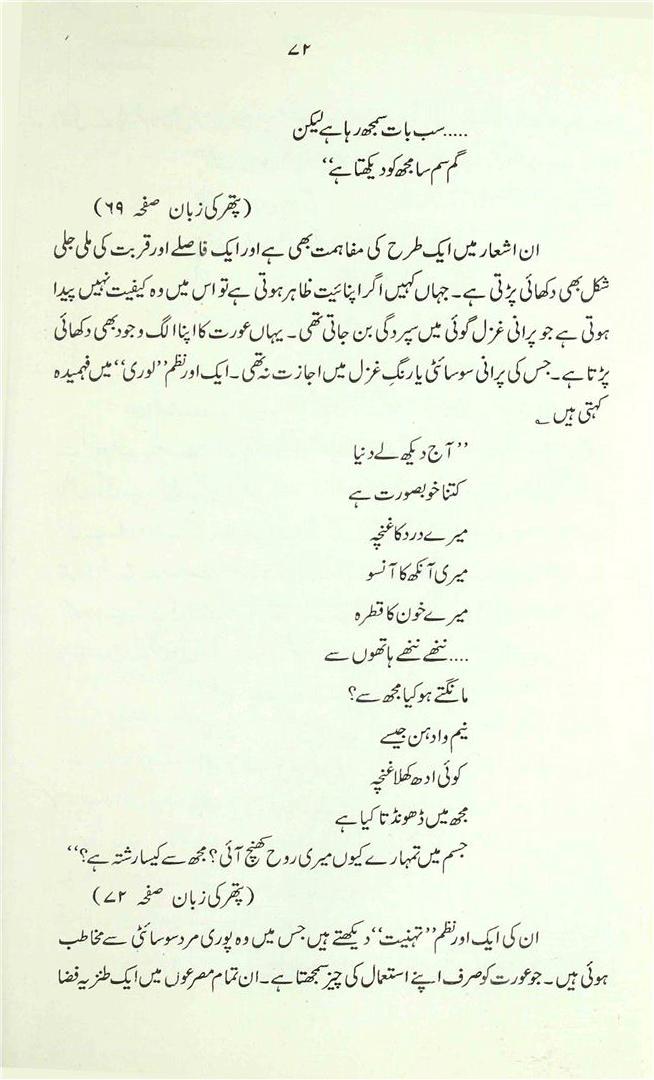 ۷۲
.....سب بات سمجھ رہا ہے لیکن
گم سم سا مجھ کو دیکھتا ہے‘‘
(پتھر کی زبان صفحہ ۶۹)
ان اشعار میں ایک طرح کی مفاہمت بھی ہے اور ایک فاصلے اور قربت کی ملی جلی
شکل بھی دکھائی پڑتی ہے۔ جہاں کہیں اگر اپنائیت ظاہر ہوتی ہے تو اس میں وہ کیفیت نہیں پیدا
ہوتی ہے جو پرانی غزل گوئی میں سپردگی بن جاتی تھی۔ یہاں عورت کا اپنا الگ وجود بھی دکھائی
پڑتا ہے۔ جس کی پرانی سوسائٹی یا رنگِ غزل میں اجازت نہ تھی۔ ایک اور نظم ’’لوری‘‘ میں فہمیدہ
کہتی ہیں ؎
’’آج دیکھ لے دنیا
کتنا خوبصورت ہے
میرے درد کا غنچہ
میری آنکھ کا آنسو
میرے خون کا قطرہ
....ننھے ننھے ہاتھوں سے
مانگتے ہو کیا مجھ سے؟
نیم وا دہن جیسے
کوئی ادھ کھلا غنچہ
مجھ میں ڈھونڈتا کیا ہے
جسم میں تمہارے کیوں میری روح کھنچ آئی؟ مجھ سے کیسا رشتہ ہے؟‘‘
(پتھر کی زبان صفحہ ۷۲)
ان کی ایک اور نظم ’’تہنیت‘‘ دیکھتے ہیں جس میں وہ پوری مرد سوسائٹی سے مخاطب
ہوئی ہیں۔ جو عورت کو صرف اپنے استعمال کی چیز سمجھتا ہے۔ ان تمام مصرعوں میں ایک طنزیہ فضا